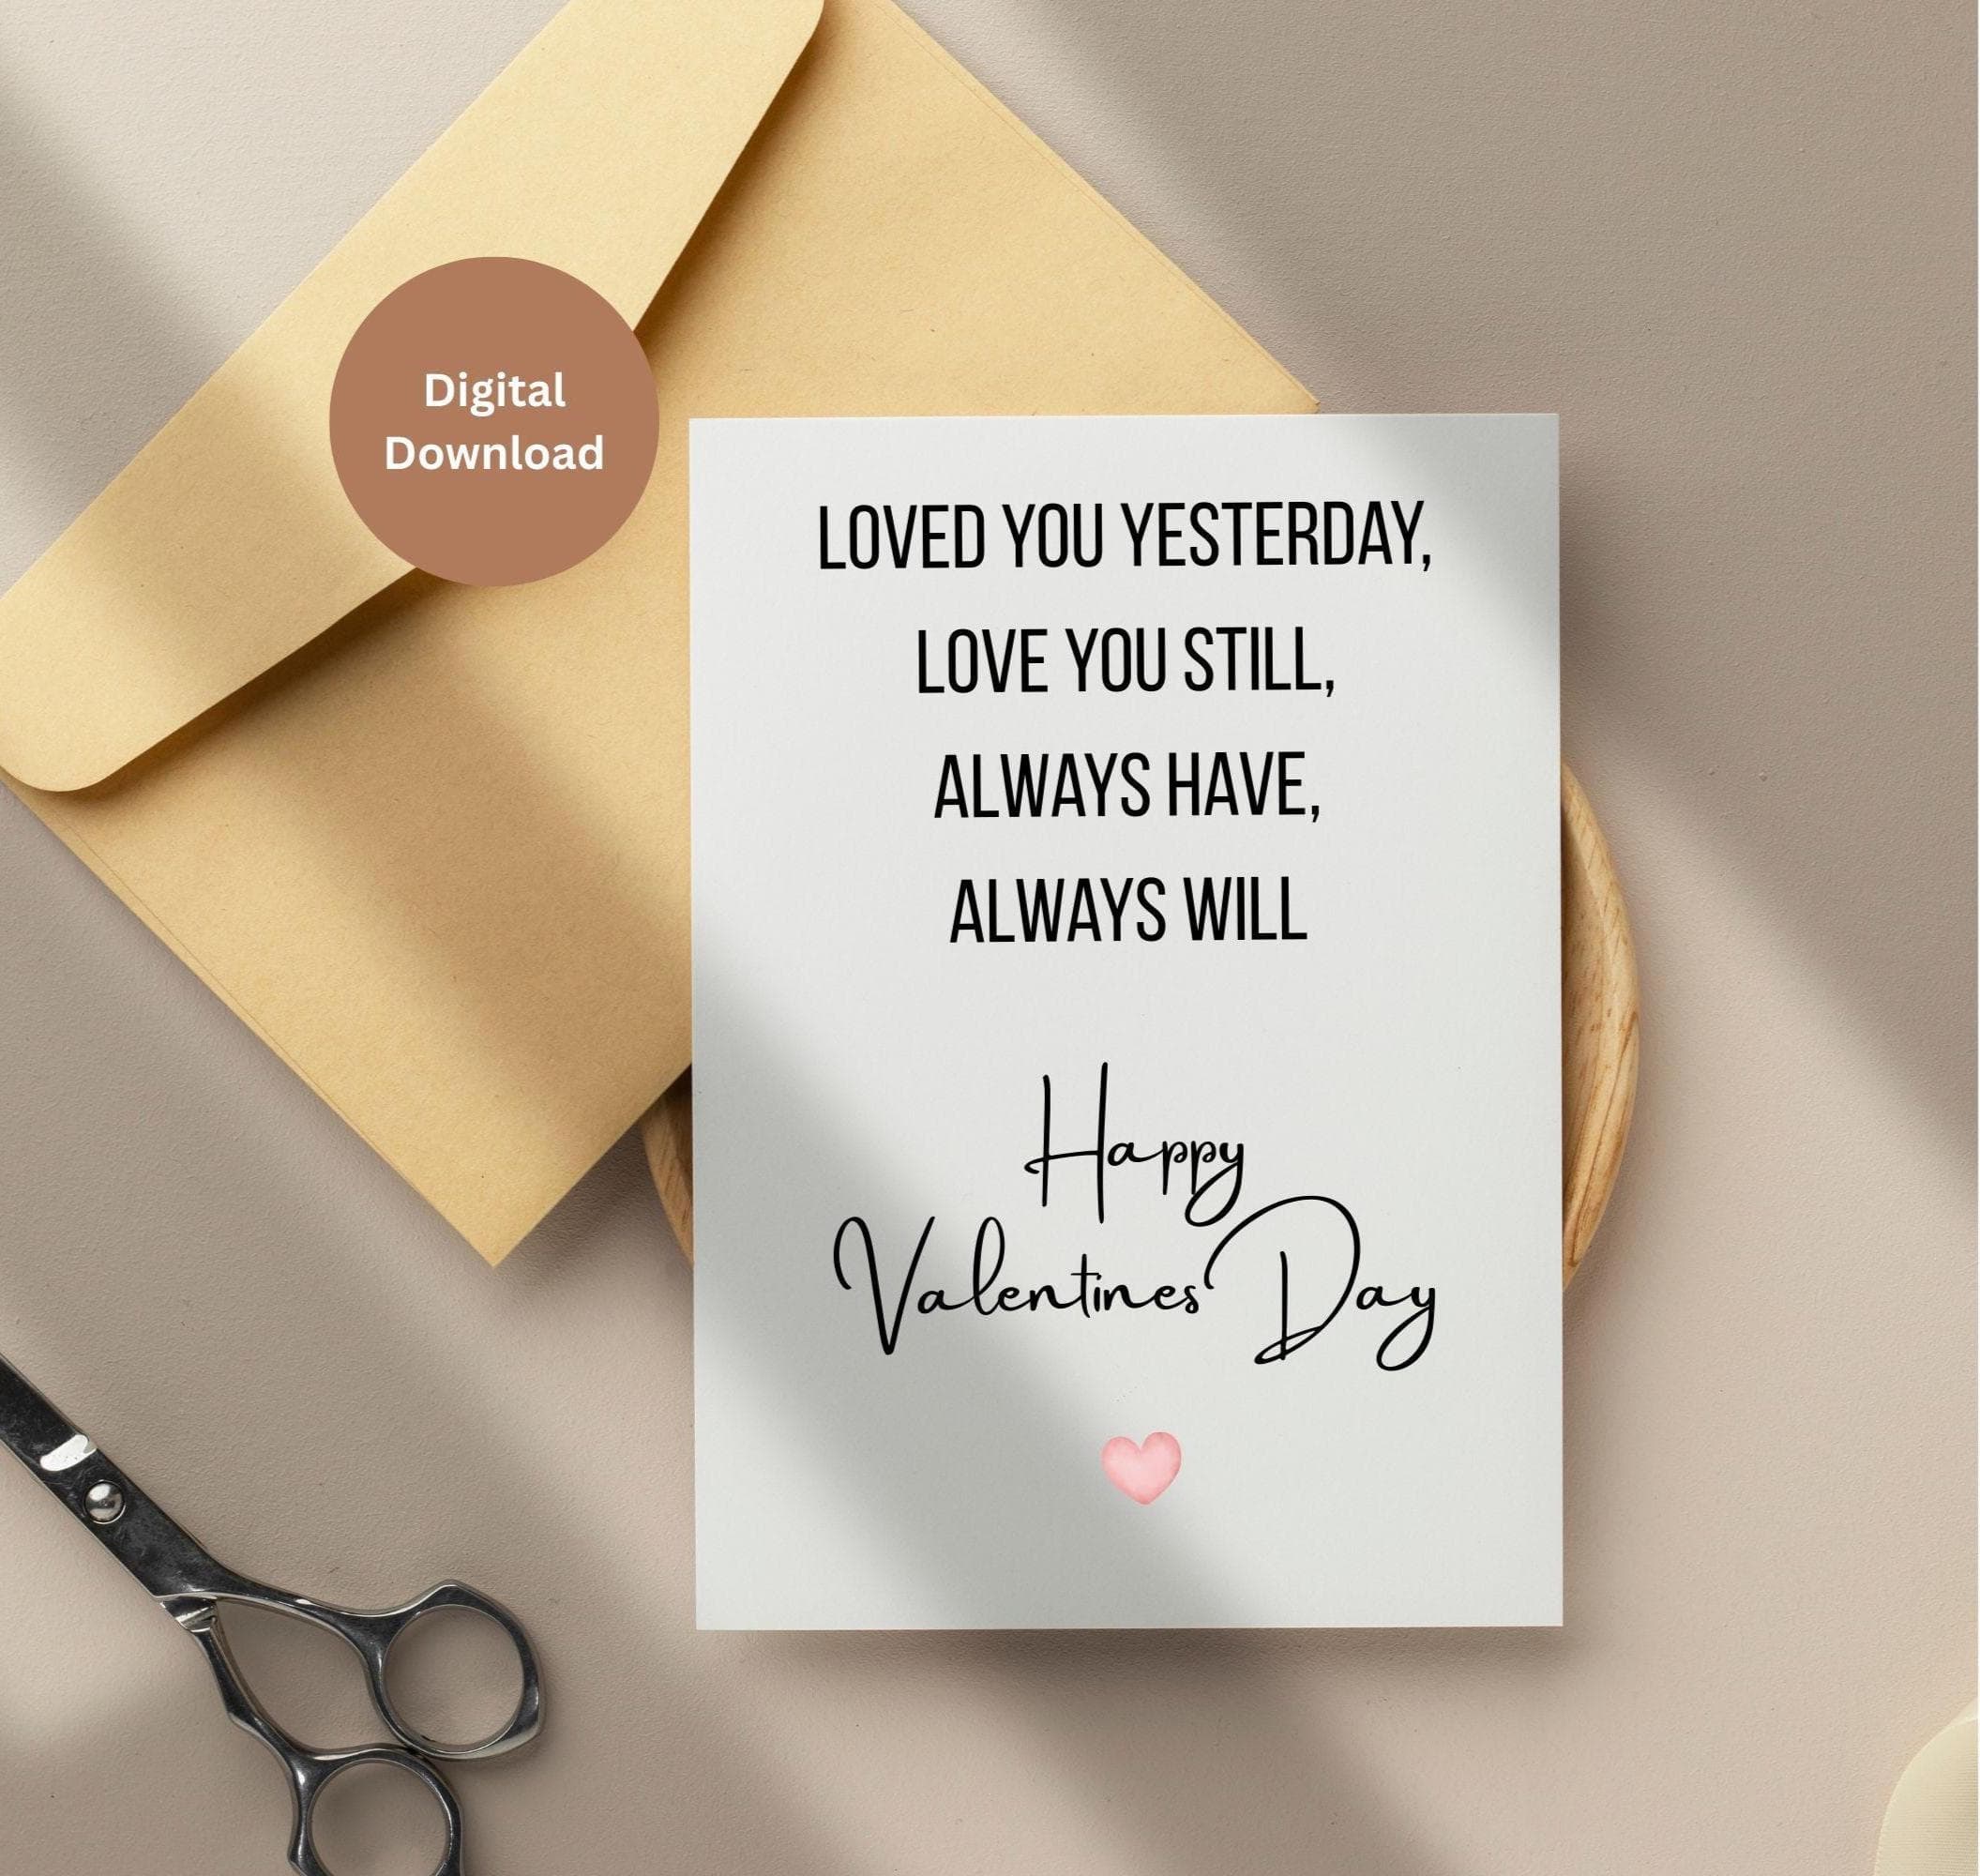 Digital
Download
LOVED YOU YESTERDAY,
LOVE YOU STILL,
ALWAYS HAVE,
ALWAYS WILL
Happy
Valentines Day